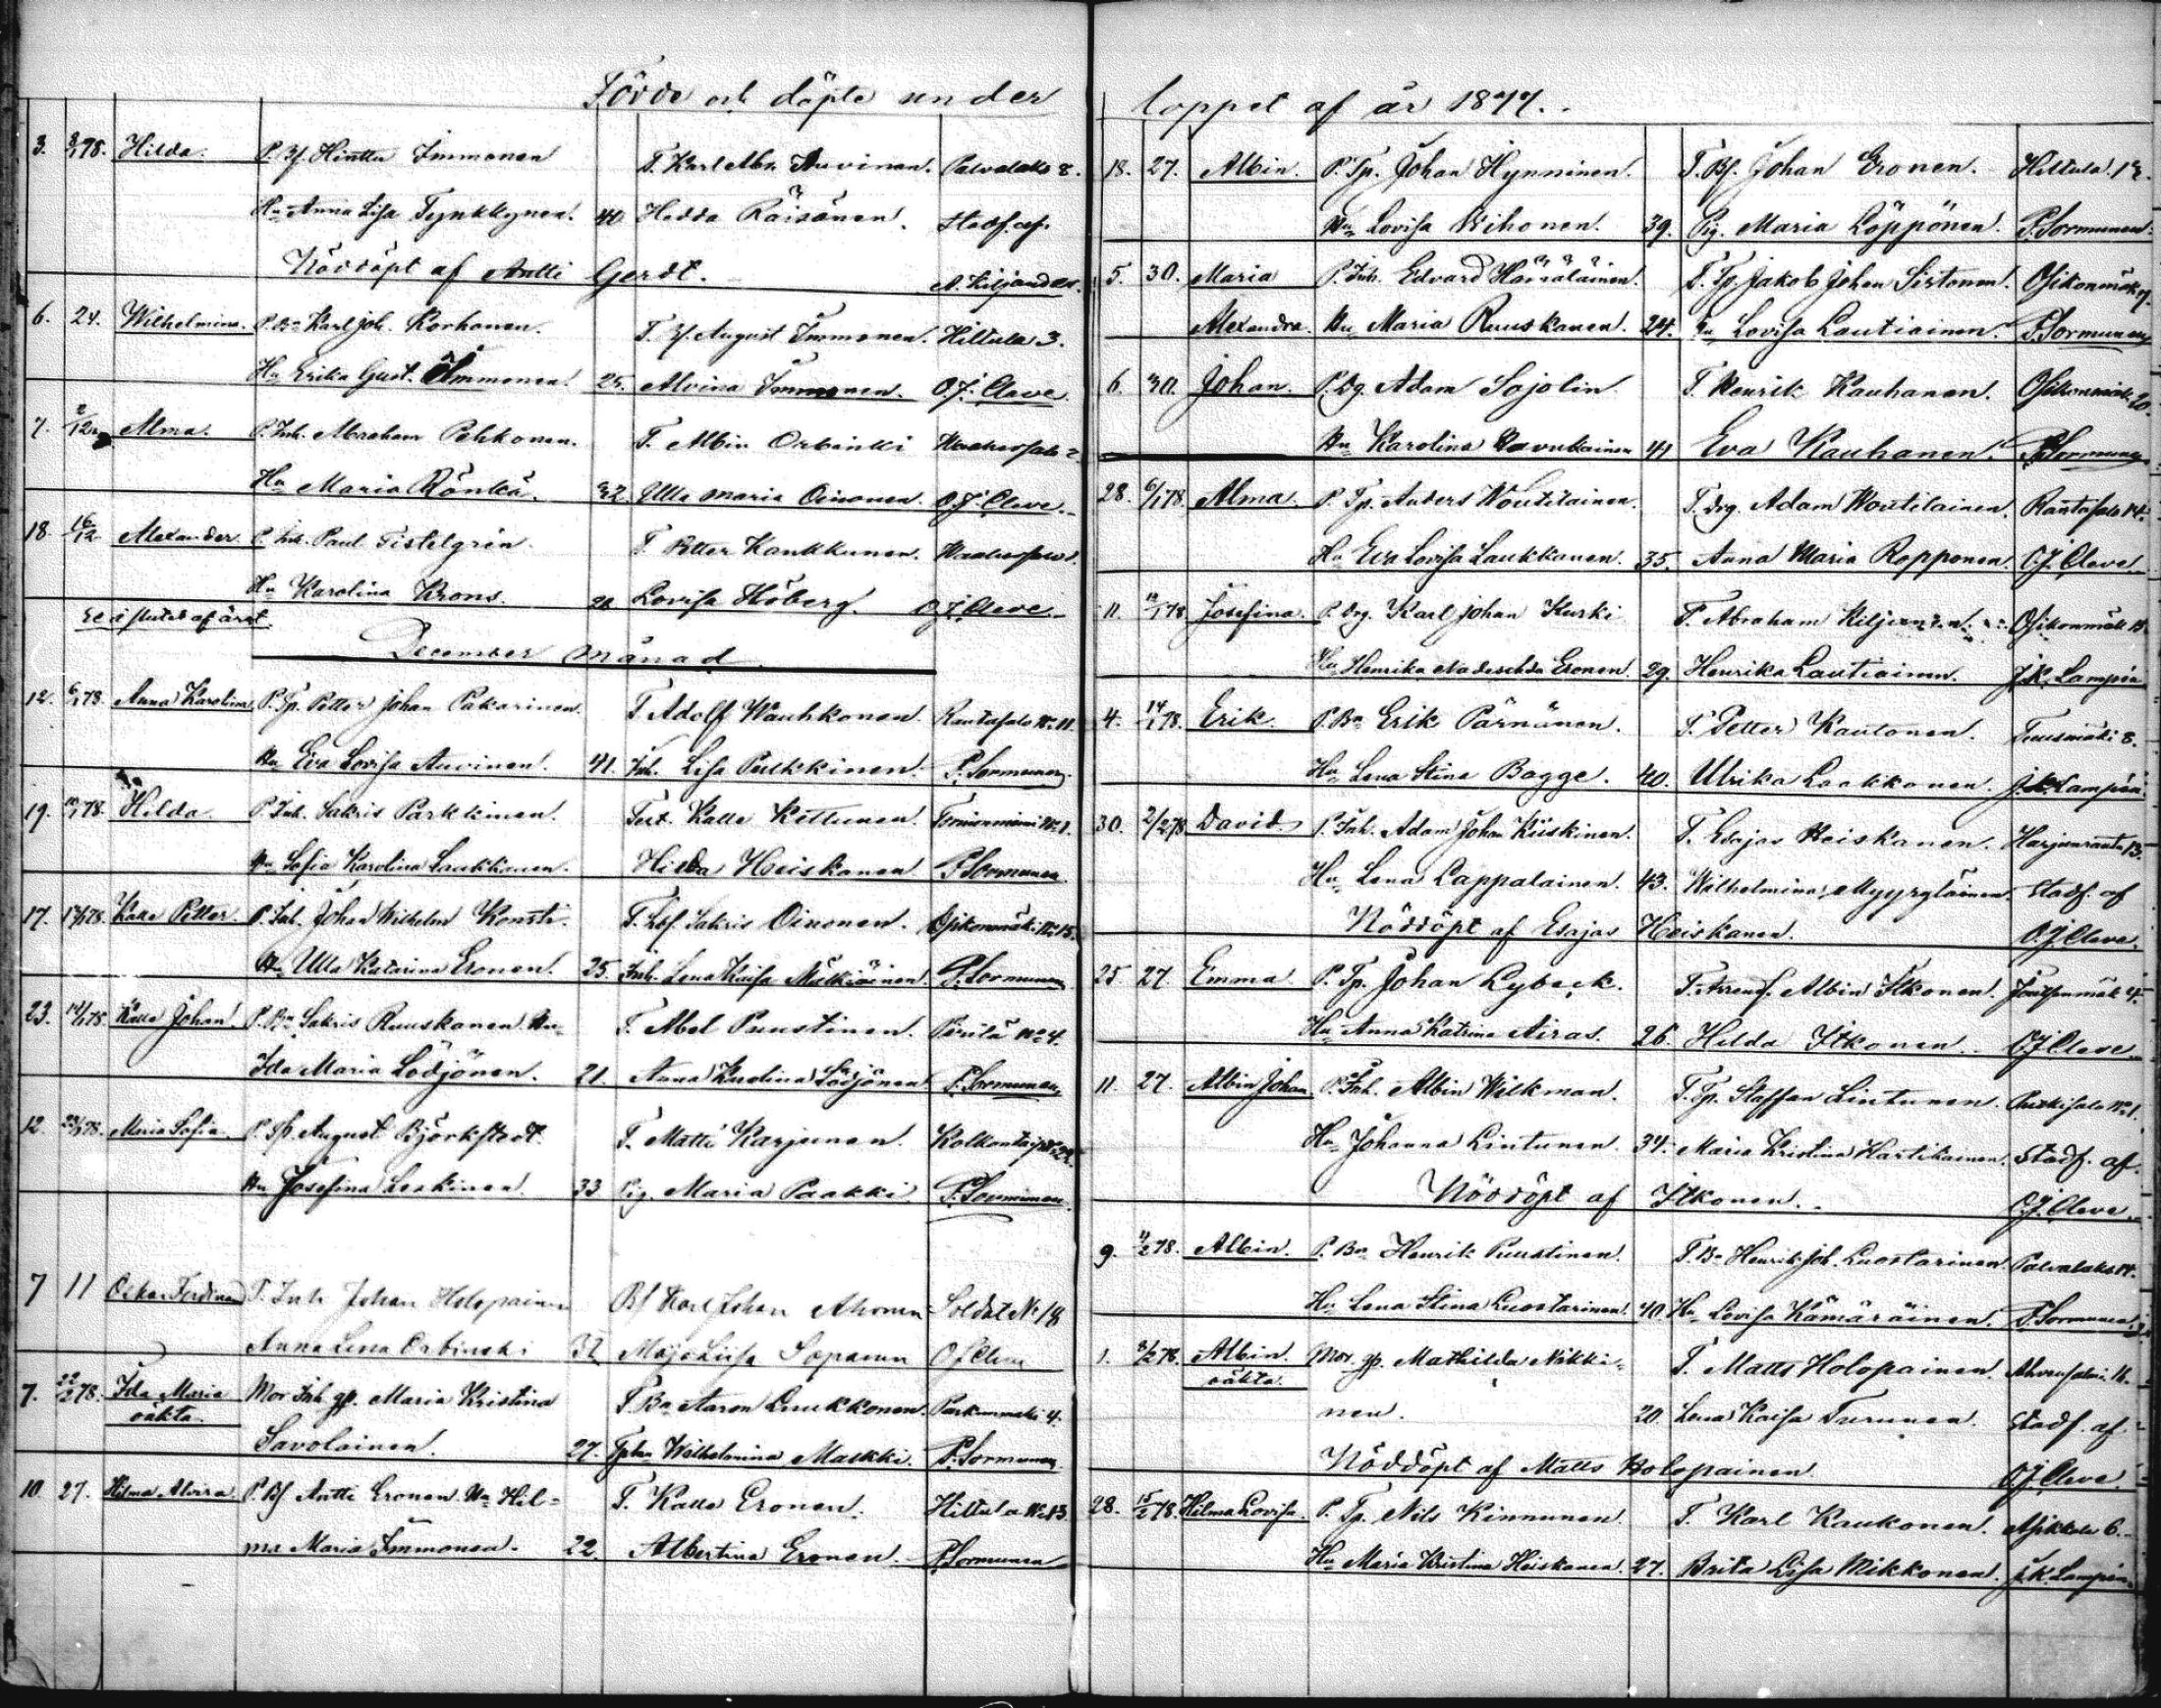 Födde och döpte under
3. 8/1 78. Hilda. P. Bf. Hinttu Immonen T. Karl Abr. Auvinen. Palvalaks 8.
Hu Anna Lisa Tynkkynen. 40 Hedda Räisänen. Stadf. af
Nöddöpt af Antti Gerdt. A. Kiljander.
6. 24. Wilhelmina. P. Bn Karl Joh. Korhonen. T. Bf. August Immonen. Hiltula 3.
Hu Erika Gust. Immonen. 25. Alvina Immonen. O.J. Cleve
7. 2/12 Alma. P. Inh. Abraham Pehkonen. T. Albin Orbinski
Hu Maria Rönkä. 32 Ulla Maria Oinonen. O.J. Cleve.
18. 16/12 Alexander P. Inh. Paul Tistelgrén. T. Petter Kaukkunen.
Hu Karolina Krons. Lovisa Höberg. O.J. Cleve.
December månad
12. 6/1 78. Anna Karolina P. Tp. Petter Johan Pakarinen. T. Adolf Wauhkonen. Rantasalo No 11.
Hu Eva Lovisa Auvinen. 41. Inh. Lisa Pulkkinen. P. Sormunen.
19. 10/1 78. Hilda P. Inh. Sakris Parkkinen. Test. Kalle Kettunen.
Hu Sofia Karolina Laukkanen. Hilda Heiskanen P. Sormunen.
17. 13/1 78. Kalle Petter. P. Inh. Johan Wilhelm Konsti. T. Lbf. Sakris Oinonen. Osikonmäki No 15.
Hu Ulla Katarina Eronen. 25. Inh. Lena Kaisa Mälkiäinen. P. Sormunen
23. 14/1 78 Kalle Johan P. Bn Sakris Ruuskanen Hu T. Abel Puustinen. Pirilä No 4.
Ida Maria Lödjönen. 21. Anna Karolina Lödjönen P. Sormunen
12 23/1 78. Maria Sofia. P. Sp. August Björkstedt T. Matti Karjunen. Kolkontaip. No 22.
Hu Josefina Laakinen 33 Pig. Maria Paakki P. Sormunen.
7 11 Oskar Ferdinand P. Inh Johan Holopainen Bf Karl Johan Ahonen Soldat No 18
Anna Lena Orbinski 32 Maja Lisa Soparin OJ Cleve
7. 22/2 78. Ida Maria Mor Inh. gp. Maria Kristina T Bn Aaron Luukkonen. Parkumäki 4.
oäkta.
Savolainen. 27. Wilhelmina Makki. P. Sormunen
10 27. Hilma Alvira P. Bf Antti Eronen Hu Hil= T. Kalle Eronen. Hiltula No 13
ma Maria Immonen. 22. Albertina Eronen. P. Sormunen
loppet af år 1877.
18. 27. Albin. P. Tp. Johan Hynninen. T. Bf. Johan Eronen. Hiltula. 12.
Hu Lovisa Wihonen. 39. Pig. Maria Löppönen. P. Sormunen.
5. 30. Maria P. Inh. Edvard Hämäläinen. T. Tp. Jakob Johan Sistonen. Osikonmäk 9.
Alexandra. Hu Maria Ruuskanen. 24. Hu Lovisa Lautiainen. P. Sormunen
6. 30. Johan. P. Dg. Adam Sojolin T. Henrik Kauhanen. Osikonmäk 20.
Hu Karolina 41 Eva Kauhanen. P. Sormunen
28. 6/1 78. Alma. P. Tp. Anders Woutilainen. T. Drg. Adam Woutilainen. Rantasalo 14.
Hu Eva Lovisa Laukkanen. 35. Anna Maria Ropponen. O.J. Cleve
11. 12/1 78 Josefina. P. Drg. Karl Johan Kurki T. Abraham Kiljunen. Osikonmäk 15.
Hu Henrika Nadeschda Eronen. 29. Henrika Lautiainen. J.K. Lampén
4. 14/1 78. Erik P. Bn Erik Pärnänen. T. Petter Kautonen. Tuusmäki 8.
Hu Lena Stina Bagge. 40. Ulrika Laakkonen. J.K. Lampén.
30. 2/2 78 David P. Inh. Adam Johan Kiiskinen. T. Esajas Heiskanen. Harjunranta 13.
Hu Lena Lappalainen. 43. Wilhelmina Myyryläinen. Stadf. af
Nöddöpt af Esajas Heiskanen. O.J. Cleve.
25 27. Emma P. Tp. Johan Lybeck. T. Arrend. Albin Itkonen.
Hu Anna Katrina Airas. 26. Hilda Itkonen. O.J. Cleve
11. 27. Albin Johan P. Inh. Albin Wilkman. T. Tp. Staffan Lintunen. Purkisalo No 1.
Hu Johanna Lintunen. 34. Maria Kristina Hartikainen. Stadf. af
Nöddöpt af Itkonen. O.J. Cleve.
9. 11/2 78. Albin. P. Bn Henrik Puustinen. T. Bn Henrik Joh. Luostarinen. Palvalaks 14.
Hu Lena Stina Luostarinen. 40 Hu Lovisa Kämäräinen. P. Sormunen
1. 8/2 78. Albin. Mor. gp. Mathilda Nikki= T. Matts Holopainen. Ahvensalmi 16.
oäkta.
nen. 20. Lena Kaisa Turunen. Stadf. af
Nöddöpt af Matts Holopainen O.J. Cleve.
28. 15/2 78. Hilma Lovisa. P. Tp. Nils Kinnunen. T. Karl Kaukonen. 6.
Hu Maria Kristina Heiskanen. 27. Brita Lisa Mikkonen. J.K. Lampén.